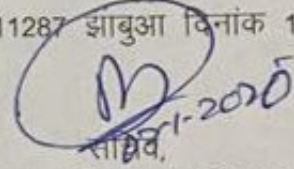 11287 झाबुआ दिनांक 1
-1-2020
सचिव,